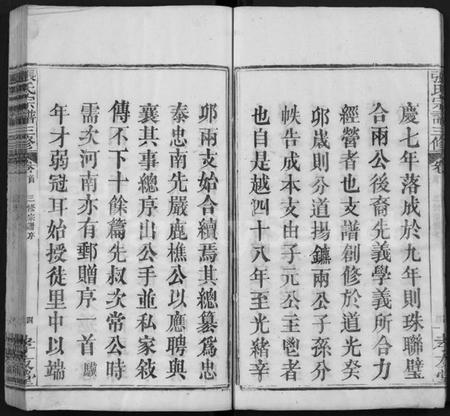 張氏宗譜三修
卷首
慶七年落成於九年則珠聯璧
合兩公後裔先義學義所合力
經營者也支譜創修於道光癸
卯歲則分道揚鑣兩公子孫分
帙告成本支由子元公主鬯者
也自是越四十八年至光緒辛
卯兩支始合續焉其總纂為忠
泰忠南先嚴鹿樵公以應聘與
襄其事總序出公手並私家敘
傳不下十餘篇先叔次常公時
需次河南亦有郵贈序一首
年才弱冠耳始授徒里中以端
張氏宗譜三修
卷首
三修宗譜序
四
孝友堂